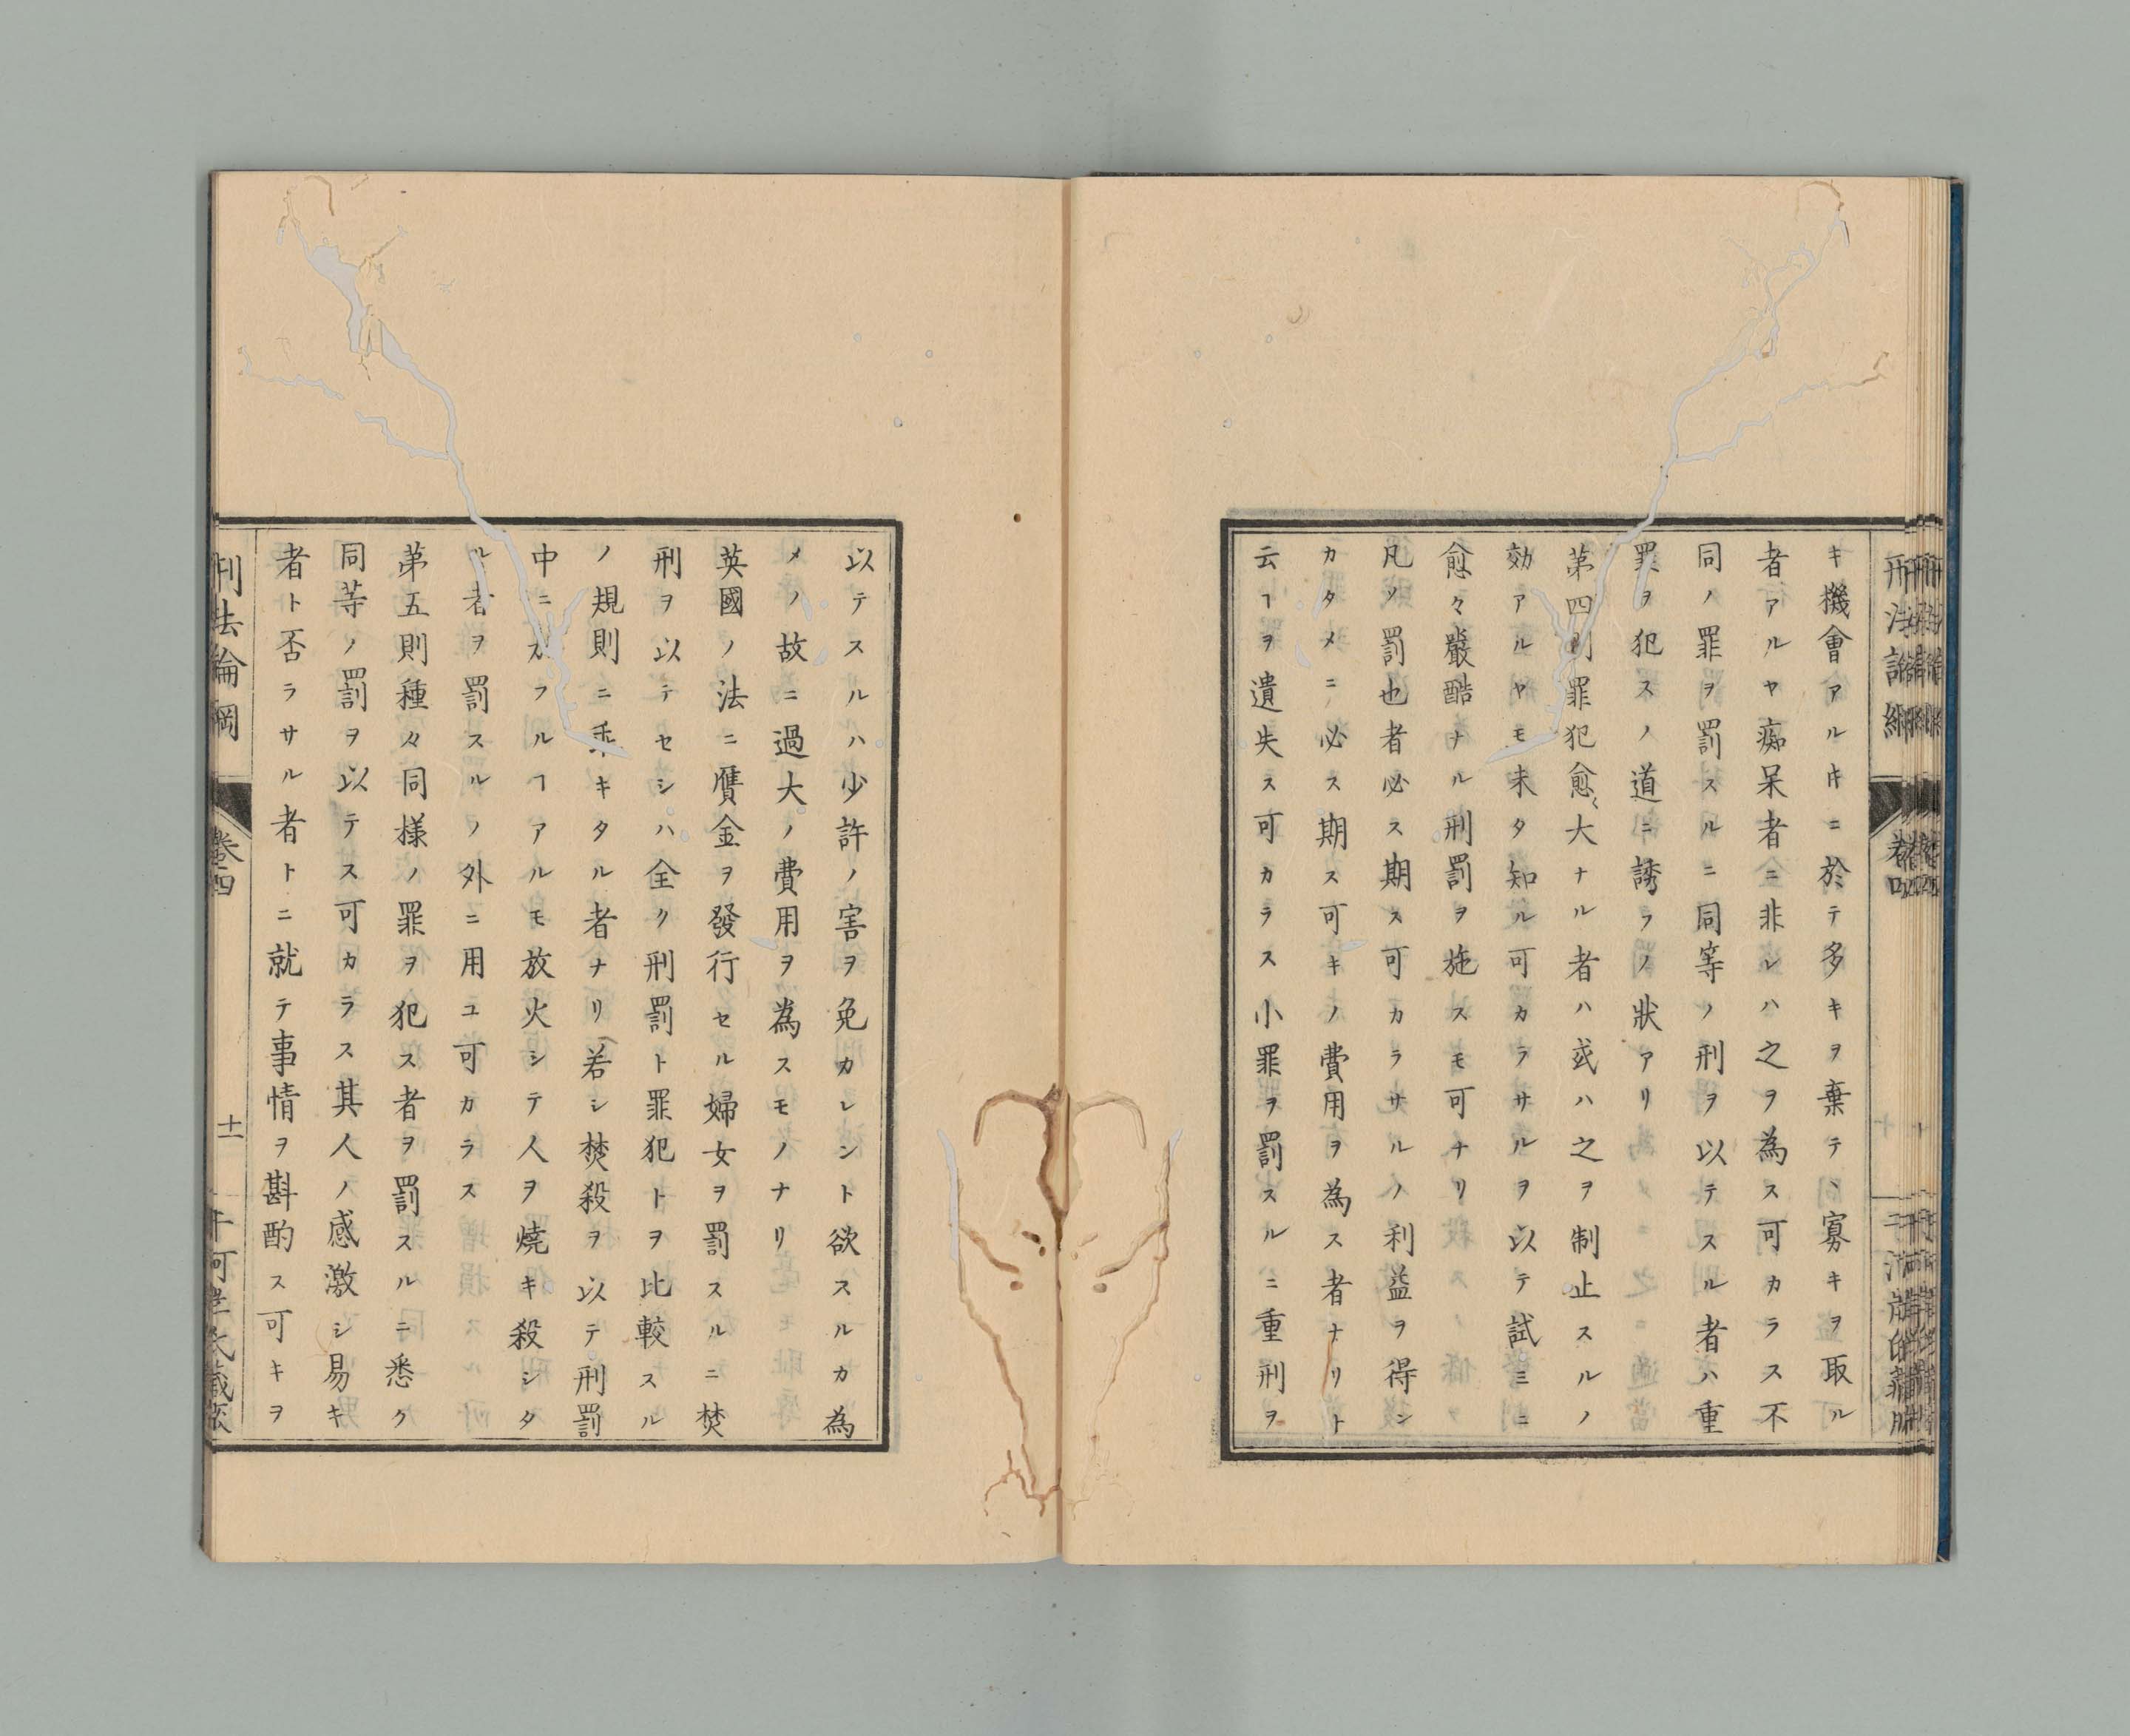 キ機會アルキニ於テ多キヲ棄テヽ寡キヲ取ル
者アルヤ痴呆者ニ非レハ之ヲ為ス可カラス不
同ノ罪ヲ罰スルニ同等ノ刑ヲ以テスル者ハ重
罪ヲ犯スノ道ニ誘フノ狀アリ
第四則罪犯愈〻大ナル者ハ或ハ之ヲ制止スルノ
効アルヤモ未タ知ル可カラサルヲ以テ試ミニ
愈々嚴酷ナル刑罰ヲ施スモ可ナリ
凡ソ罰也者必ス期ス可カラサルノ利益ヲ得ン
カタメニ必ス期ス可キノ費用ヲ為ス者ナリト
云ヿヲ遺失ス可カラス小罪ヲ罰スルニ重刑ヲ
以テスルハ少許ノ害ヲ免カレント欲スルカ為
メノ故ニ過大ノ費用ヲ為スモノナリ
英國ノ法ニ贋金ヲ發行セル婦女ヲ罰スルニ焚
刑ヲ以テセシハ全ク刑罰ト罪犯トヲ比較スル
ノ規則ニ乖キタル者ナリ若シ焚殺ヲ以テ刑罰
中ニ加フルヿアルモ放火シテ人ヲ燒キ殺シタ
ル者ヲ罰スルノ外ニ用ユ可カラス
第五則種々同樣ノ罪ヲ犯ス者ヲ罰スルニ悉ク
同等ノ罰ヲ以テス可カラス其人ノ感激シ易キ
者ト否ラサル者トニ就テ事情ヲ斟酌ス可キヲ
刑法論綱
卷四
十一